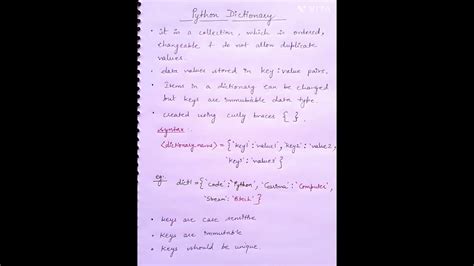 Python Dictionary
• It is a collection, which is ordered,
changeable & do not allow duplicate
values.
• data values stored in key:value pairs.
• Items in a dictionary can be changed
but keys are immutable data type.
• created using curly braces { }.
Syntax
<dictionary.name> = {'key1':value1, 'key2':'value2,
'key3':'value3}
eg: dict1={'code':'Python', 'Course':'Computer',
'Stream':'Btech'}
• keys are case sensitive
• keys are immutable
• keys should be unique.